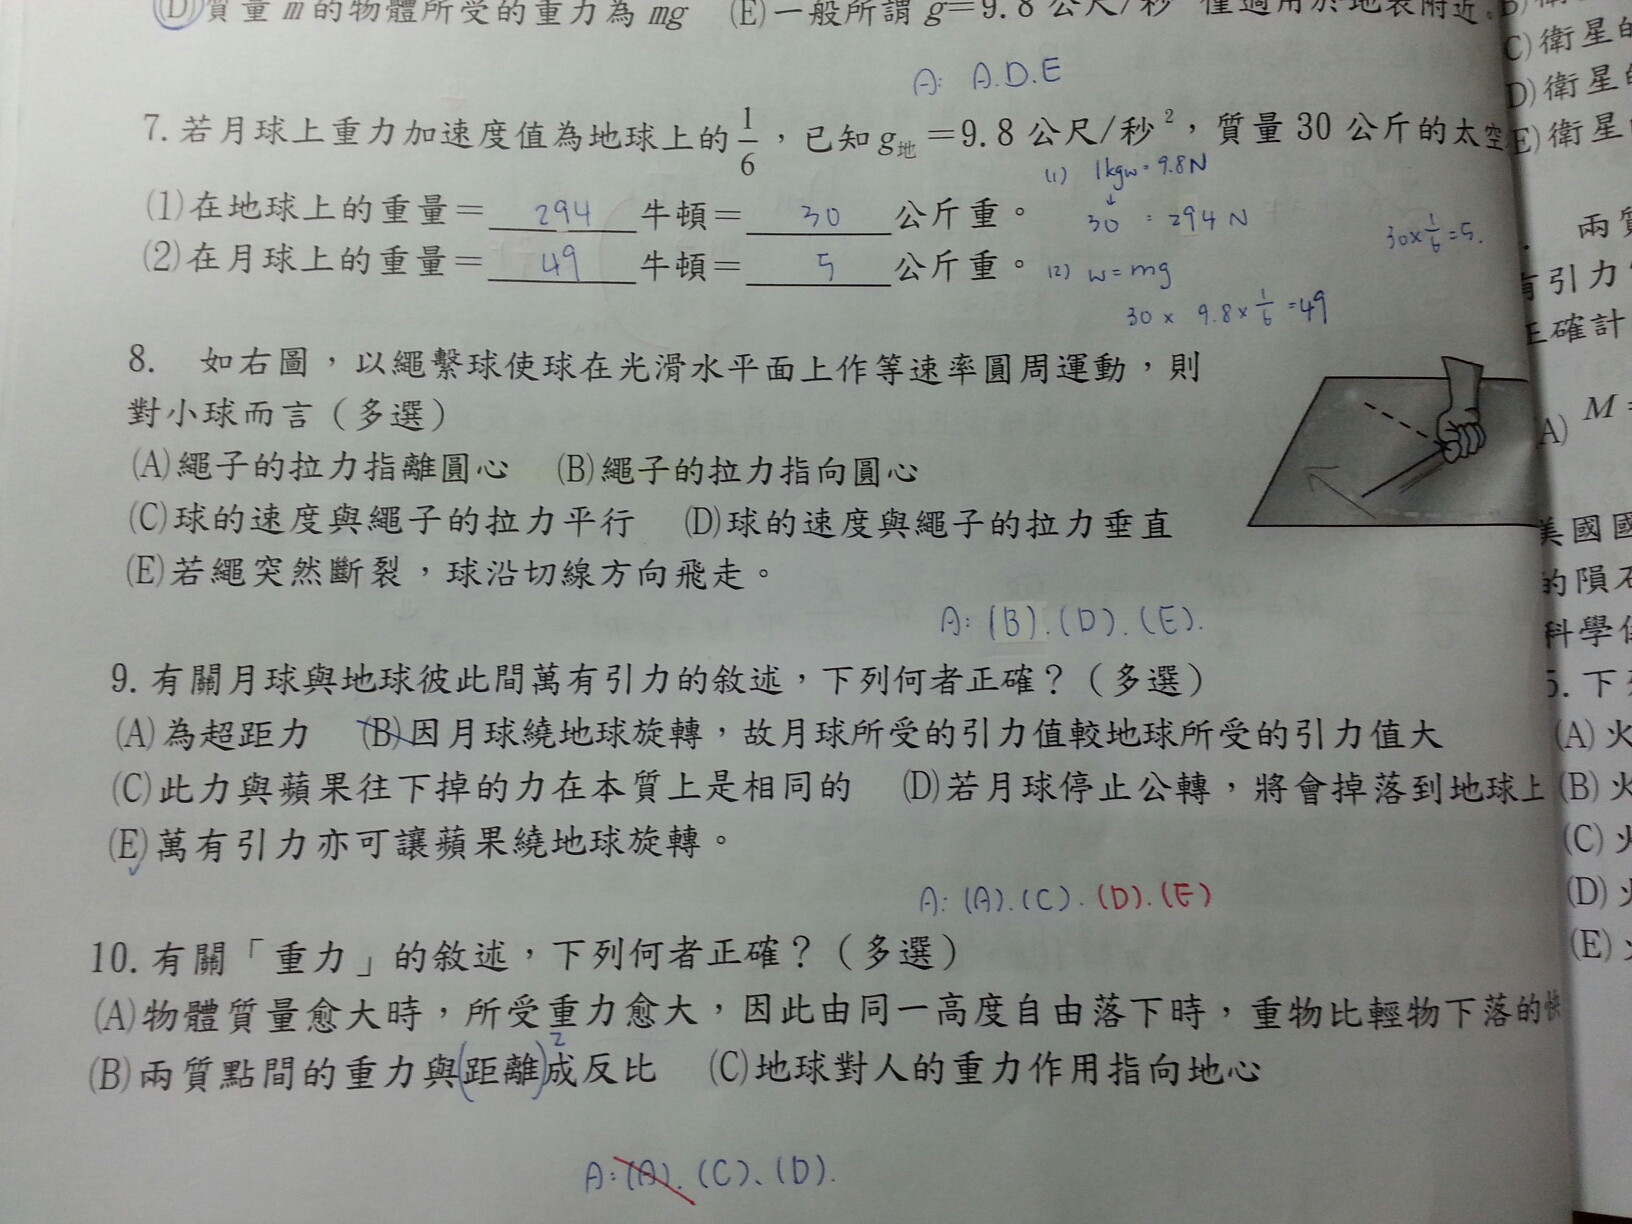 (D)質量m的物體所受的重力為mg (E)一般所謂g=9.8公尺/秒 僅適用於地表附近。
A: A.D.E
7.若月球上重力加速度值為地球上的1/6,已知g地=9.8公尺/秒²,質量30公斤的太空
(1) 1kgw=9.8N
(1)在地球上的重量=294牛頓=30公斤重。
30 : 294 N
30×1/6=5.
(2)在月球上的重量=49牛頓=5公斤重。
(2) w=mg
30 × 9.8×1/6=49
8. 如右圖,以繩繫球使球在光滑水平面上作等速率圓周運動,則
對小球而言(多選)
(A)繩子的拉力指離圓心 (B)繩子的拉力指向圓心
(C)球的速度與繩子的拉力平行 (D)球的速度與繩子的拉力垂直
(E)若繩突然斷裂,球沿切線方向飛走。
A: (B).(D).(E).
9.有關月球與地球彼此間萬有引力的敘述,下列何者正確?(多選)
(A)為超距力 (B)因月球繞地球旋轉,故月球所受的引力值較地球所受的引力值大
(C)此力與蘋果往下掉的力在本質上是相同的 (D)若月球停止公轉,將會掉落到地球上
(E)萬有引力亦可讓蘋果繞地球旋轉。
A: (A).(C).(D).(E)
10.有關「重力」的敘述,下列何者正確?(多選)
(A)物體質量愈大時,所受重力愈大,因此由同一高度自由落下時,重物比輕物下落的快
(B)兩質點間的重力與(距離)²成反比 (C)地球對人的重力作用指向地心
A:(A).(C)、(D).
(C)衛星的
(D)衛星的
(E)衛星
兩質
有引力
正確計
(A) M=
美國國
的隕石
科學
5.下
(A)火
(B)火
(C)火
(D)火
(E)火